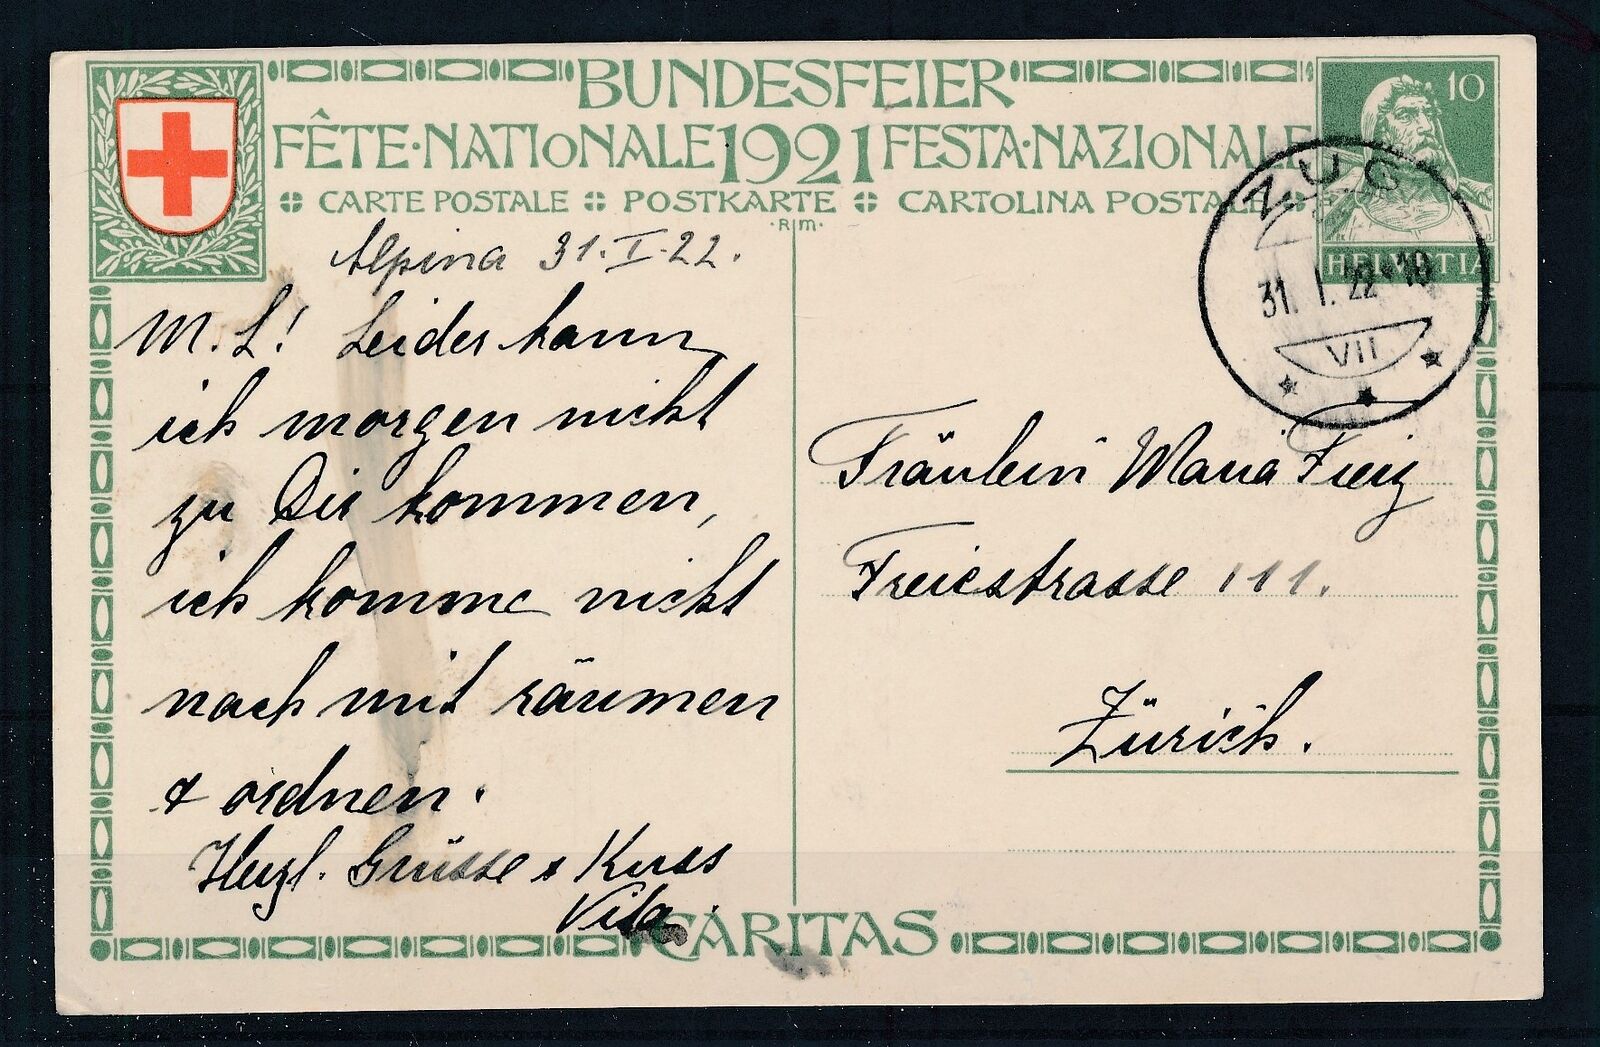 BUNDESFEIER
FÊTE·NATIONALE 1921 FESTA·NAZIONALE
CARTE POSTALE POSTKARTE CARTOLINA POSTALE
·R M·
10
HELVETIA
ZUG
31. I. 22 - 18
VII
Alpina 31. I. 22.
M. L! Leider kann
ich morgen nicht
zu Dir kommen,
ich komme nicht
nach mit räumen
& ordnen.
Herzl. Grüsse & Kuss
Vita.
Fräulein Maria Fierz
Freiestrasse 111.
Zürich.
CARITAS